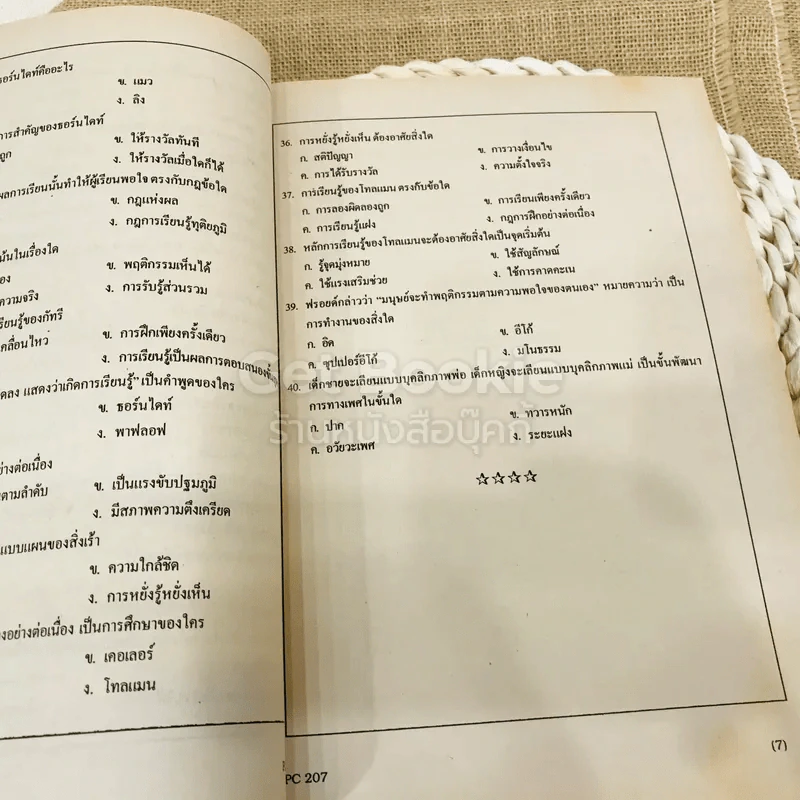 ธอร์นไดท์คืออะไร
ข. แมว
ง. ลิง
การสำคัญของธอร์นไดท์
ข. ให้รางวัลทันที
ถูก
ง. ให้รางวัลเมื่อใดก็ได้
ผลการเรียนนั้นทำให้ผู้เรียนพอใจ ตรงกับกฎข้อใด
ข. กฎแห่งผล
ง. กฎการเรียนรู้ทุติยภูมิ
นั้นในเรื่องใด
ข. พฤติกรรมเห็นได้
ง. การรับรู้ส่วนรวม
ความจริง
รียนรู้ของกัทรี
ข. การฝึกเพียงครั้งเดียว
คลื่อนไหว
ง. การเรียนรู้เป็นผลการตอบสนอง
ดลง แสดงว่าเกิดการเรียนรู้" เป็นคำพูดของใคร
ข. ธอร์นไดท์
ง. พาฟลอฟ
ย่างต่อเนื่อง
ข. เป็นแรงขับปฐมภูมิ
ตามลำดับ
ง. มีสภาพความตึงเครียด
แบบแผนของสิ่งเร้า
ข. ความใกล้ชิด
ง. การหยั่งรู้หยั่งเห็น
งอย่างต่อเนื่อง เป็นการศึกษาของใคร
ข. เคอเลอร์
ง. โทลแมน
36. การหยั่งรู้หยั่งเห็น ต้องอาศัยสิ่งใด
ก. สติปัญญา ข. การวางเงื่อนไข
ค. การได้รับรางวัล ง. ความตั้งใจจริง
37. การเรียนรู้ของโทลแมน ตรงกับข้อใด
ก. การลองผิดลองถูก ข. การเรียนเพียงครั้งเดียว
ค. การเรียนรู้แฝง ง. กฎการฝึกอย่างต่อเนื่อง
38. หลักการเรียนรู้ของโทลแมนจะต้องอาศัยสิ่งใดเป็นจุดเริ่มต้น
ก. รู้จุดมุ่งหมาย ข. ใช้สัญลักษณ์
ค. ใช้แรงเสริมช่วย ง. ใช้การคาดคะเน
39. ฟรอยด์กล่าวว่า "มนุษย์จะทำพฤติกรรมตามความพอใจของตนเอง" หมายความว่า เป็น
การทำงานของสิ่งใด
ก. อิด ข. อีโก้
ค. ซุปเปอร์อีโก้ ง. มโนธรรม
40. เด็กชายจะเลียนแบบบุคลิกภาพพ่อ เด็กหญิงจะเลียนแบบบุคลิกภาพแม่ เป็นขั้นพัฒนา
การทางเพศในขั้นใด
ก. ปาก ข. ทวารหนัก
ค. อวัยวะเพศ ง. ระยะแฝง
☆☆☆☆
PC 207
(7)
Get Bookie
ร้านหนังสือบุ๊คกี้